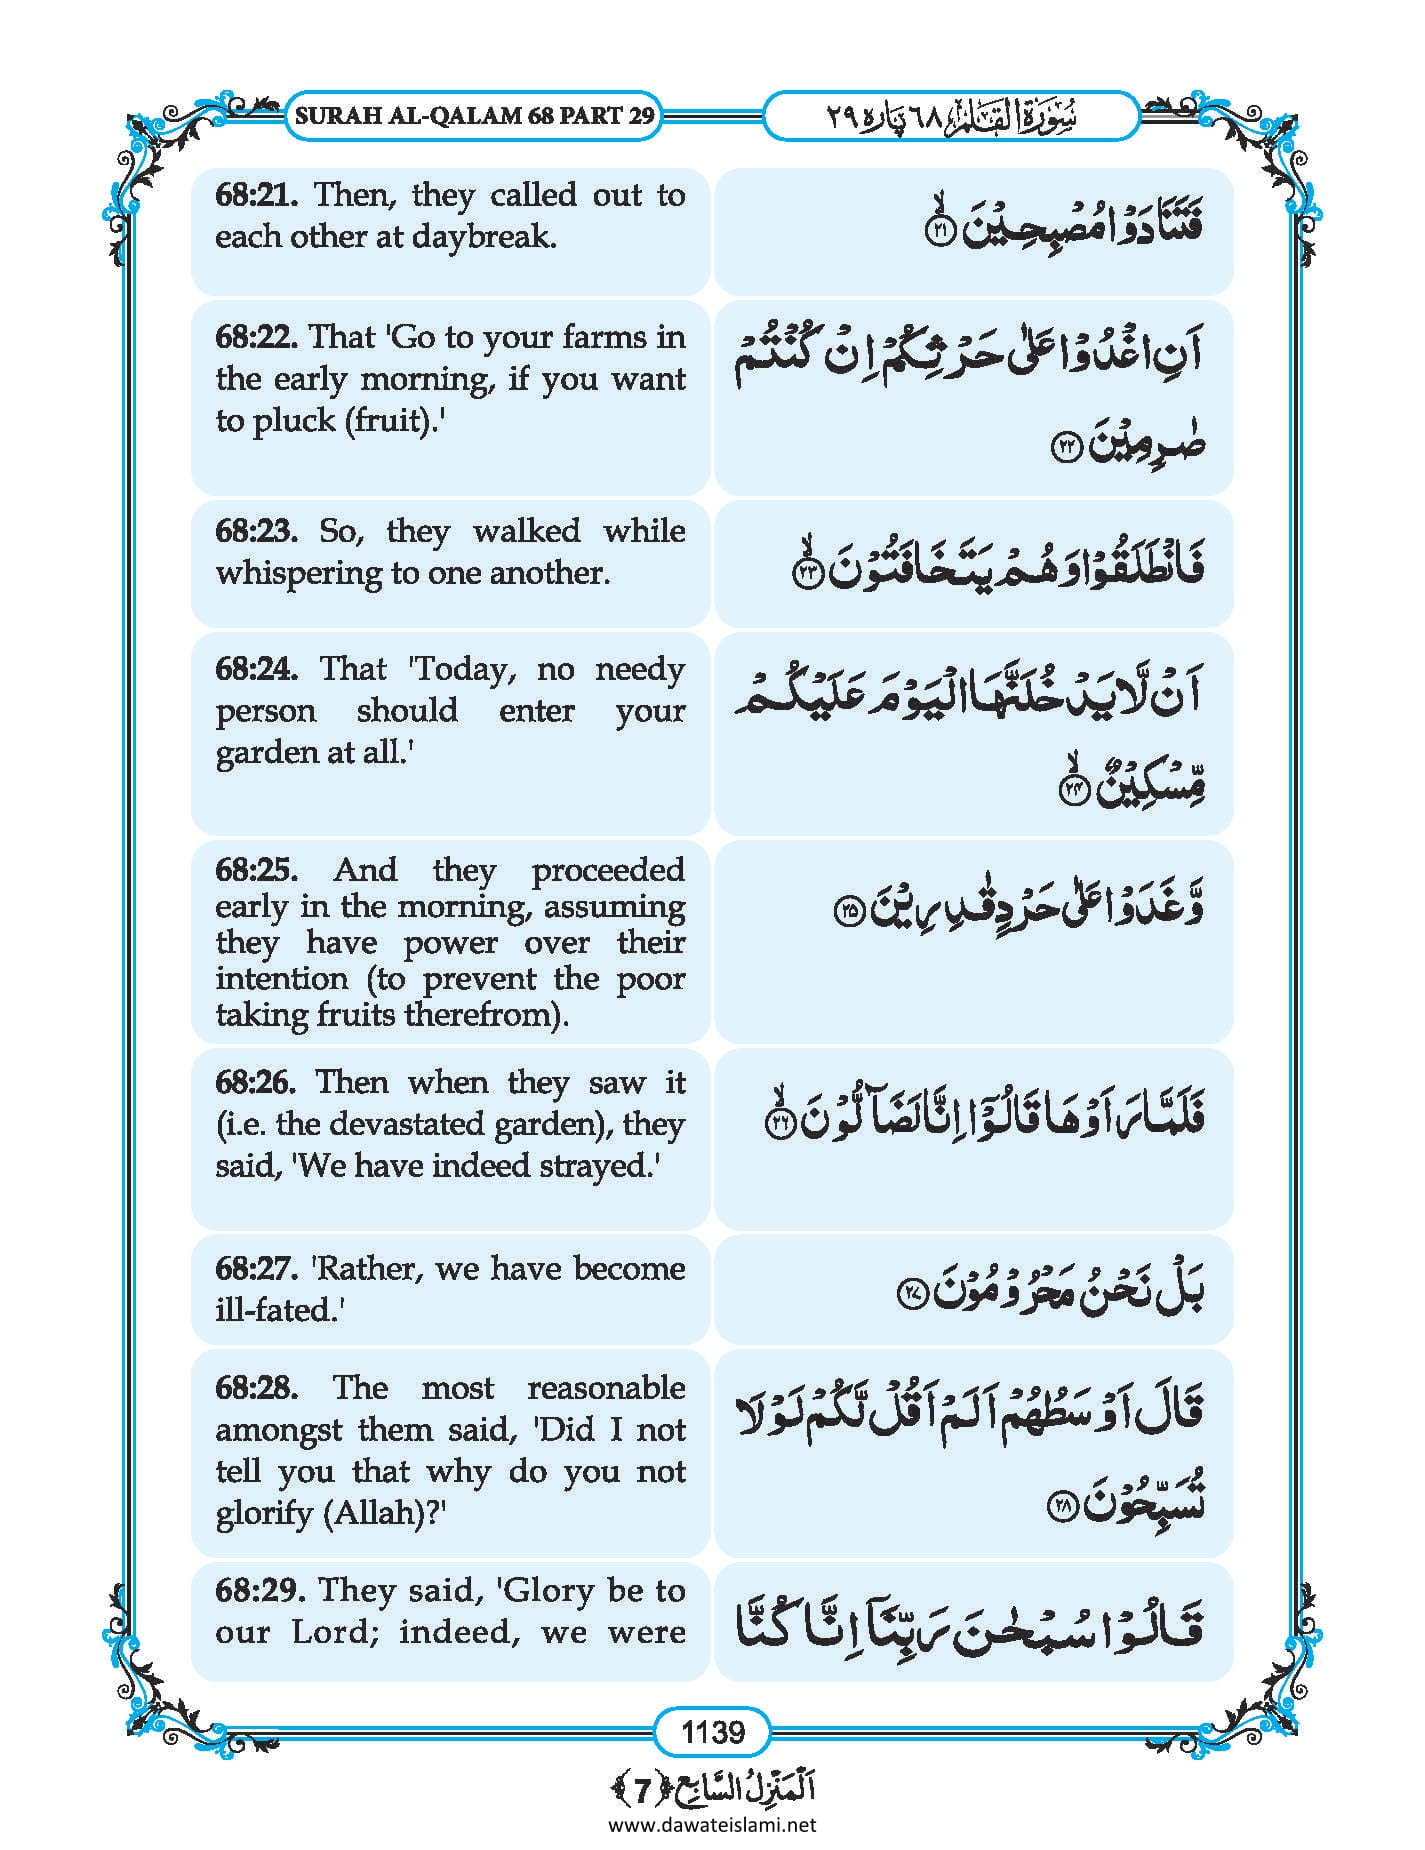 SURAH AL-QALAM 68 PART 29
سُوۡرَۃُ الۡقَلَم ٦٨ پَارہ ٢٩
68:21. Then, they called out to
each other at daybreak.
فَتَنَادَوۡا مُصۡبِحِیۡنَ ﴿ۙ۲۱﴾
68:22. That 'Go to your farms in
the early morning, if you want
to pluck (fruit).'
اَنِ اغۡدُوۡا عَلٰی حَرۡثِکُمۡ اِنۡ کُنۡتُمۡ
صٰرِمِیۡنَ ﴿۲۲﴾
68:23. So, they walked while
whispering to one another.
فَانۡطَلَقُوۡا وَ ہُمۡ یَتَخَافَتُوۡنَ ﴿ۙ۲۳﴾
68:24. That 'Today, no needy
person should enter your
garden at all.'
اَنۡ لَّا یَدۡخُلَنَّہَا الۡیَوۡمَ عَلَیۡکُمۡ
مِّسۡکِیۡنٌ ﴿ۙ۲۴﴾
68:25. And they proceeded
early in the morning, assuming
they have power over their
intention (to prevent the poor
taking fruits therefrom).
وَّ غَدَوۡا عَلٰی حَرۡدٍ قٰدِرِیۡنَ ﴿۲۵﴾
68:26. Then when they saw it
(i.e. the devastated garden), they
said, 'We have indeed strayed.'
فَلَمَّا رَاَوۡہَا قَالُوۡۤا اِنَّا لَضَآلُّوۡنَ ﴿ۙ۲۶﴾
68:27. 'Rather, we have become
ill-fated.'
بَلۡ نَحۡنُ مَحۡرُوۡمُوۡنَ ﴿۲۷﴾
68:28. The most reasonable
amongst them said, 'Did I not
tell you that why do you not
glorify (Allah)?'
قَالَ اَوۡسَطُہُمۡ اَلَمۡ اَقُلۡ لَّکُمۡ لَوۡ لَا
تُسَبِّحُوۡنَ ﴿۲۸﴾
68:29. They said, 'Glory be to
our Lord; indeed, we were
قَالُوۡا سُبۡحٰنَ رَبِّنَاۤ اِنَّا کُنَّا
1139
اَلۡمَنۡزِلُ السَّابِع ﴿7﴾
www.dawateislami.net